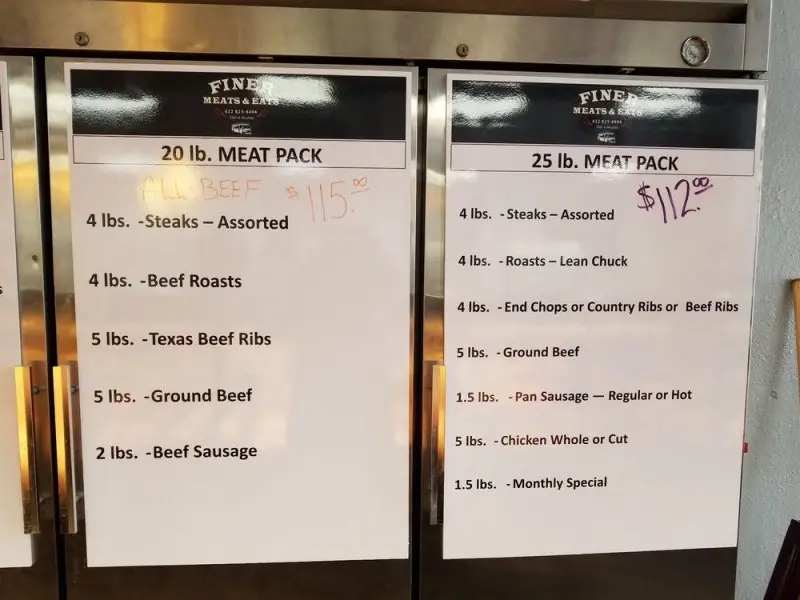 FINER
MEATS & EATS
20 lb. MEAT PACK
ALL BEEF $115.00
4 lbs. -Steaks – Assorted
4 lbs. -Beef Roasts
5 lbs. -Texas Beef Ribs
5 lbs. -Ground Beef
2 lbs. -Beef Sausage
FINER
MEATS & EATS
25 lb. MEAT PACK
$112.00
4 lbs. - Steaks – Assorted
4 lbs. - Roasts – Lean Chuck
4 lbs. - End Chops or Country Ribs or Beef Ribs
5 lbs. - Ground Beef
1.5 lbs. - Pan Sausage — Regular or Hot
5 lbs. - Chicken Whole or Cut
1.5 lbs. - Monthly Special